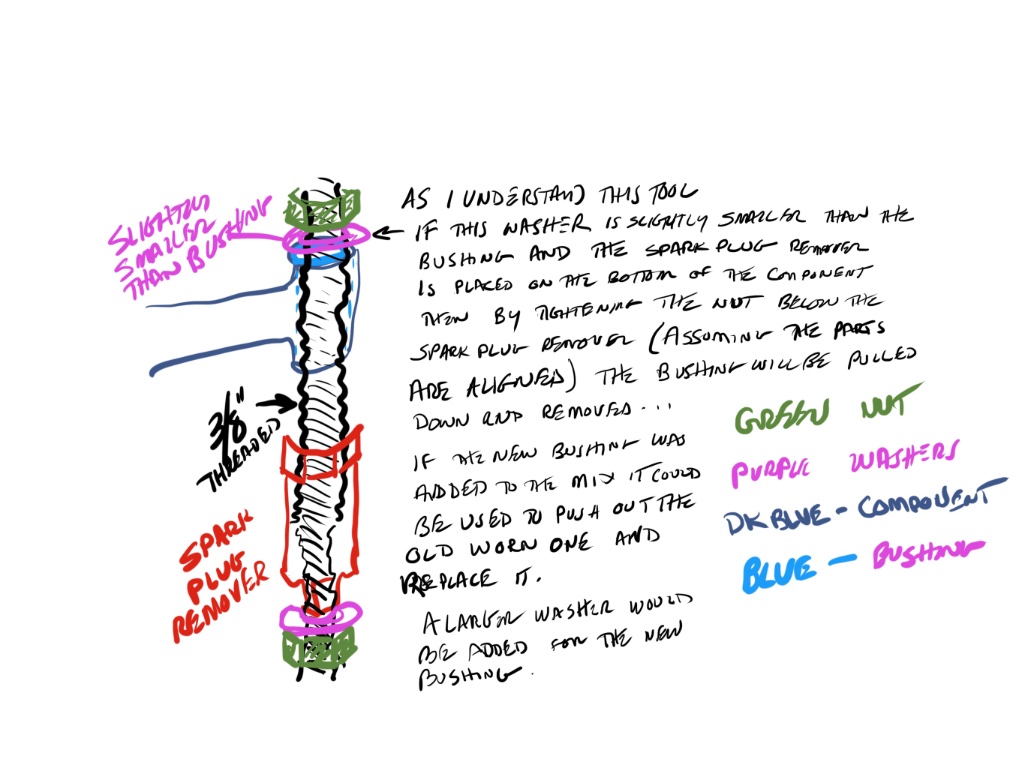 SLIGHTLY
SMALLER
THAN BUSHING
AS I UNDERSTAND THIS TOOL
IF THIS WASHER IS SLIGHTLY SMALLER THAN THE
BUSHING AND THE SPARK PLUG REMOVER
IS PLACED ON THE BOTTOM OF THE COMPONENT
THEN BY TIGHTENING THE NUT BELOW THE
SPARK PLUG REMOVER (ASSUMING THE PARTS
ARE ALIGNED) THE BUSHING WILL BE PULLED
DOWN AND REMOVED....
IF THE NEW BUSHING WAS
ADDED TO THE MIX IT COULD
BE USED TO PUSH OUT THE
OLD WORN ONE AND
REPLACE IT.
A LARGER WASHER WOULD
BE ADDED FOR THE NEW
BUSHING.
3/8"
THREADED
SPARK
PLUG
REMOVER
GREEN NUT
PURPLE WASHERS
DK BLUE - COMPONENT
BLUE - BUSHING